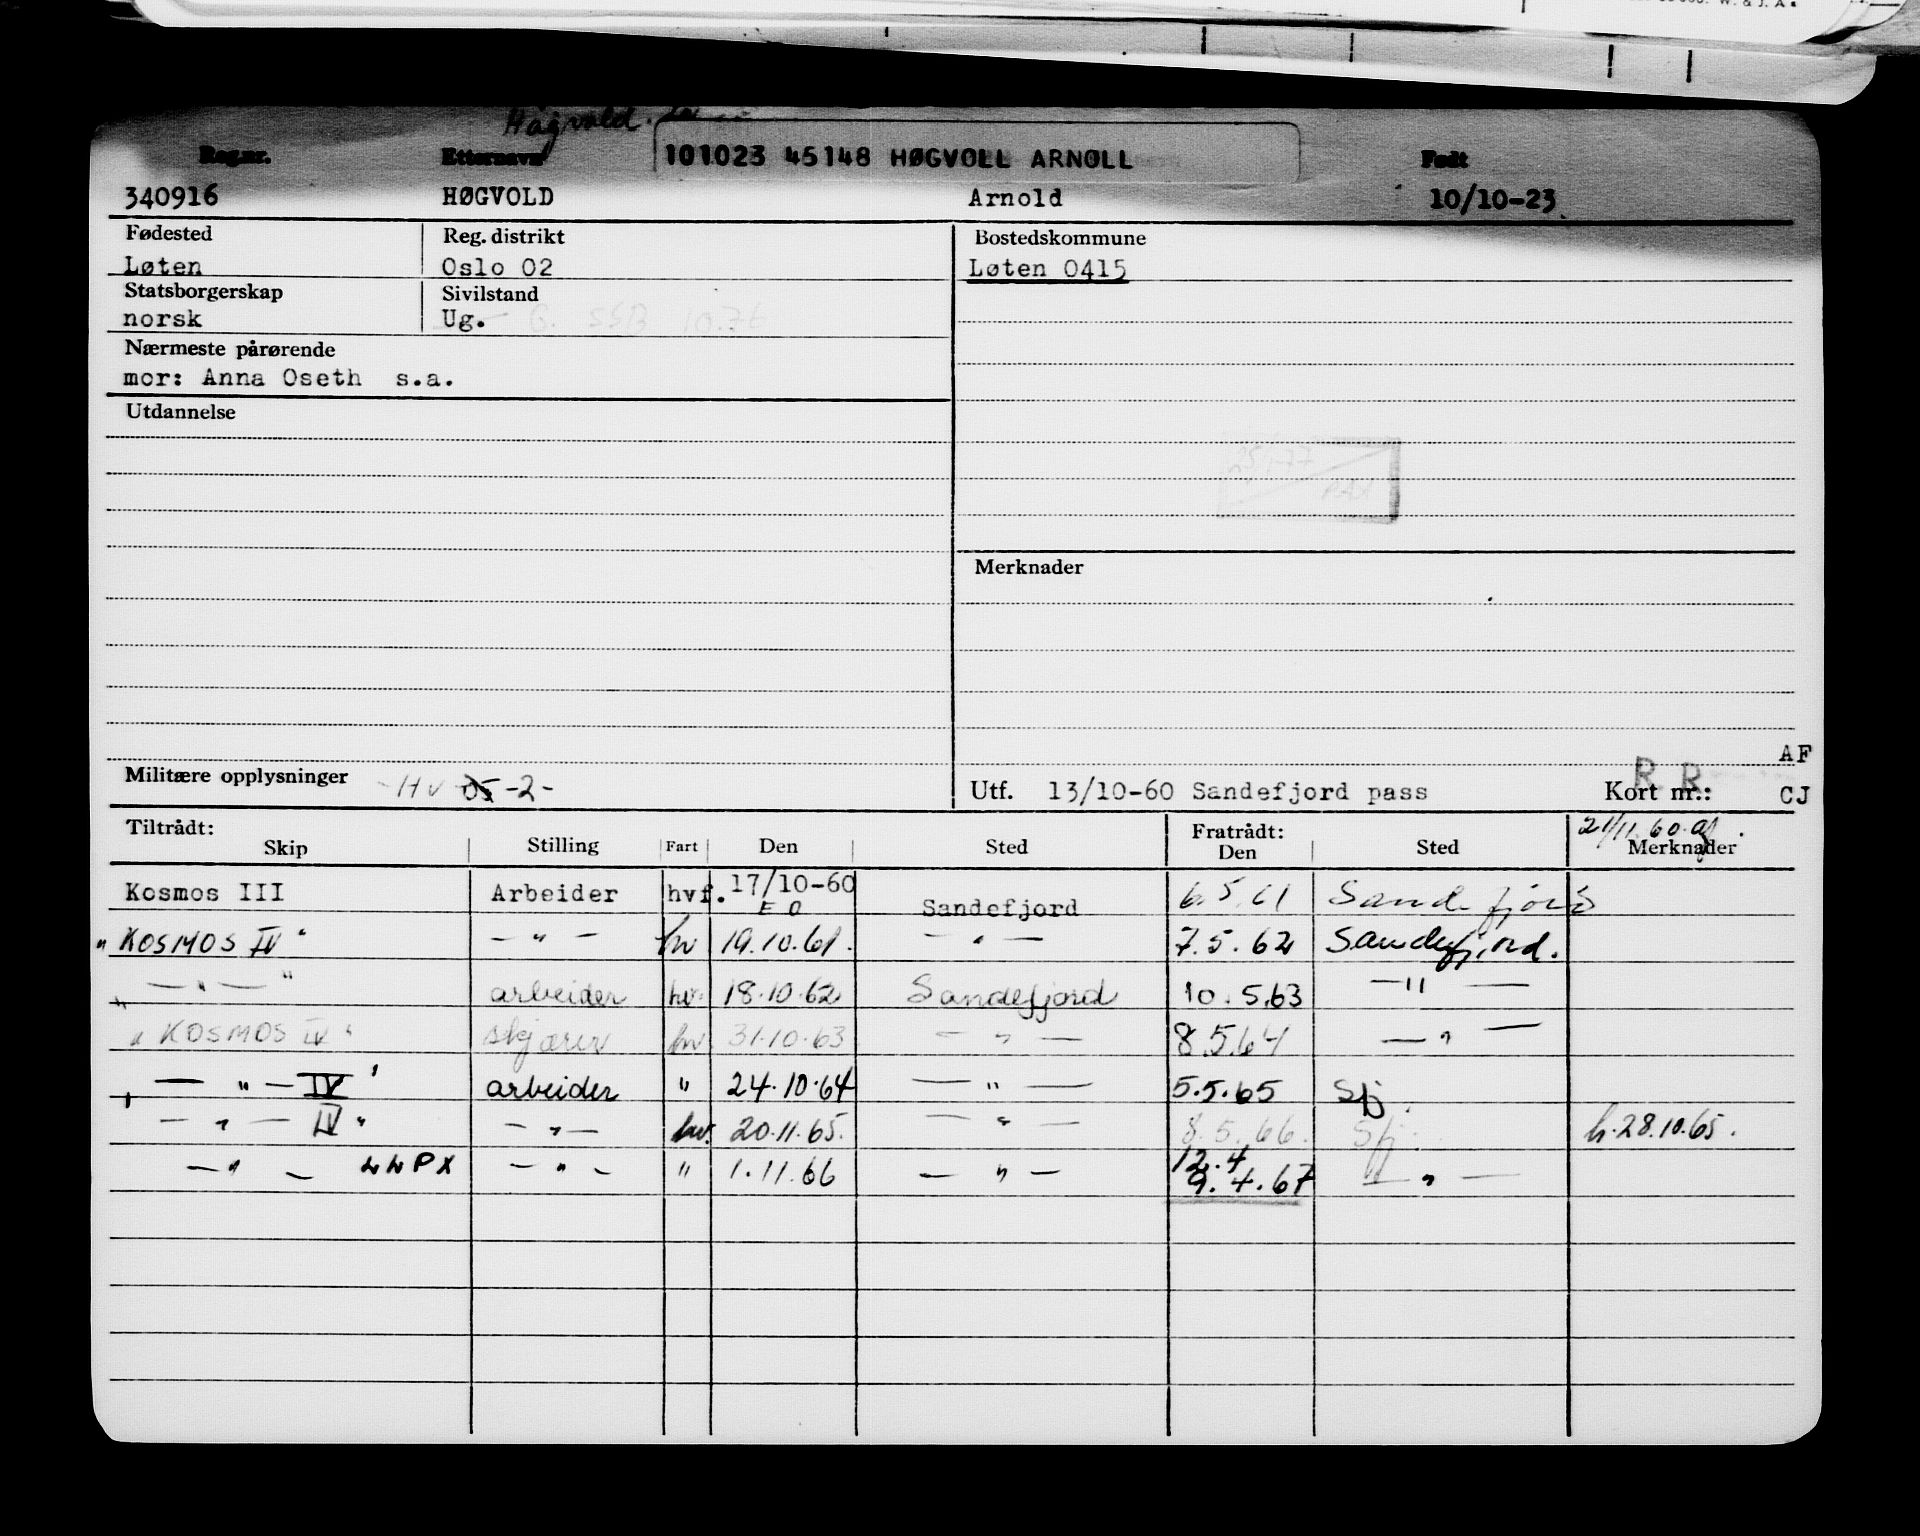 W. & J. A.
Høgvold
Reg.nr. Etternavn 101023 45148 HØGVOLL ARNOLL Født
340916 HØGVOLD Arnold 10/10-23
Fødested Reg. distrikt Bostedskommune
Løten Oslo 02 Løten 0415
Statsborgerskap Sivilstand
norsk Ug. G. SSB 10.76
Nærmeste pårørende
mor: Anna Oseth s.a.
Utdannelse
25/1-77
Merknader
AF
R R
Militære opplysninger -HV 05 -2- Utf. 13/10-60 Sandefjord pass Kort nr.: CJ
Tiltrådt: Fratrådt: 21/11.60.
Skip Stilling Fart Den Sted Den Sted Merknader
Kosmos III Arbeider hvf. 17/10-60 Sandefjord 6.5.61 Sandefjord
E O
"KOSMOS IV" — " — hv 19.10.61. — " — 7.5.62 Sandefjord.
" — " — " arbeider hv. 18.10.62 Sandefjord 10.5.63 — " —
"KOSMOS IV" skjærer hv. 31.10.63 — " — 8.5.64 — " —
' — " — IV ' arbeider " 24.10.64 — " — 5.5.65 Sfj.
— " — IV " — " — hv. 20.11.65. — " — 8.5.66. Sfj. h.28.10.65.
— " — LLPX — " — " 1.11.66 — " — 12.4 9.4.67 — " —